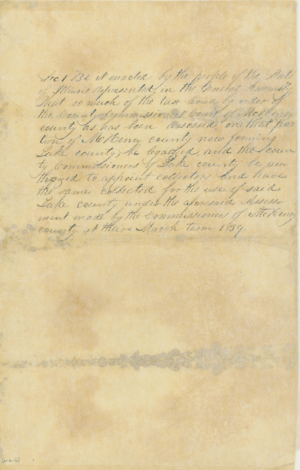 Sec 1 Be it enacted by the people of the State
of Illinois represented in the General Assembly
That so much of the tax laid by order of
the County Commissioners Court of McHenry
county as has been assessed on that por
tion of McHenry county now forming
Lake county be and the Coun
ty Commissioners of Lake county be au
thorized to appoint collectors and have
the same collected for the use of said
Lake county under the aforesaid Assess
ment made by the Commissioners of McHenry
county at their March term 1839